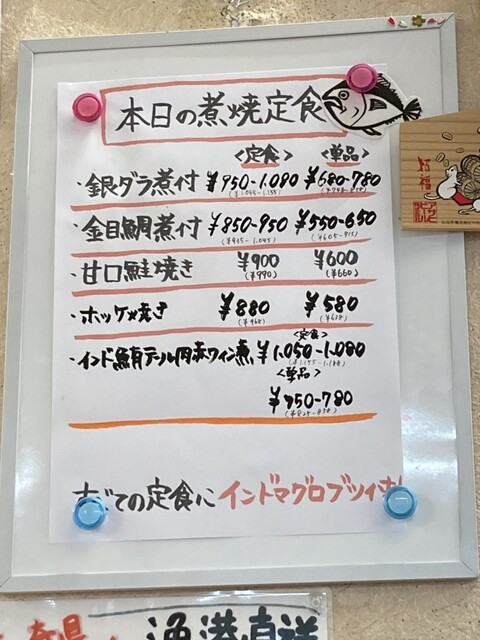 本日の煮焼定食
<定食> <単品>
・銀ダラ煮付 ¥950-1.080 ¥680-780
・金目鯛煮付 ¥850-950 ¥550-650
(¥935-1.045)
・甘口鮭焼き ¥900 ¥600
(¥990) (¥660)
・ホッケ焼き ¥880 ¥580
(¥968) (¥638)
<定食>
・インド鮪テール肉赤ワイン煮 ¥1.050-1.080
(¥1.155-1.188)
<単品>
-780
(¥825-858)
すべての定食にインドマグロブツ
招福
漁港直送